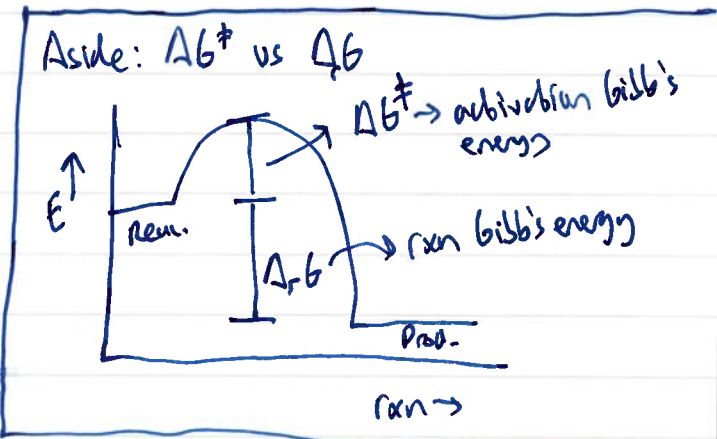 Aside: ΔG‡ vs ΔrG
ΔG‡ → activation Gibb's
energy
E ↑
Reac.
ΔrG → rxn Gibb's energy
Prod.
rxn →